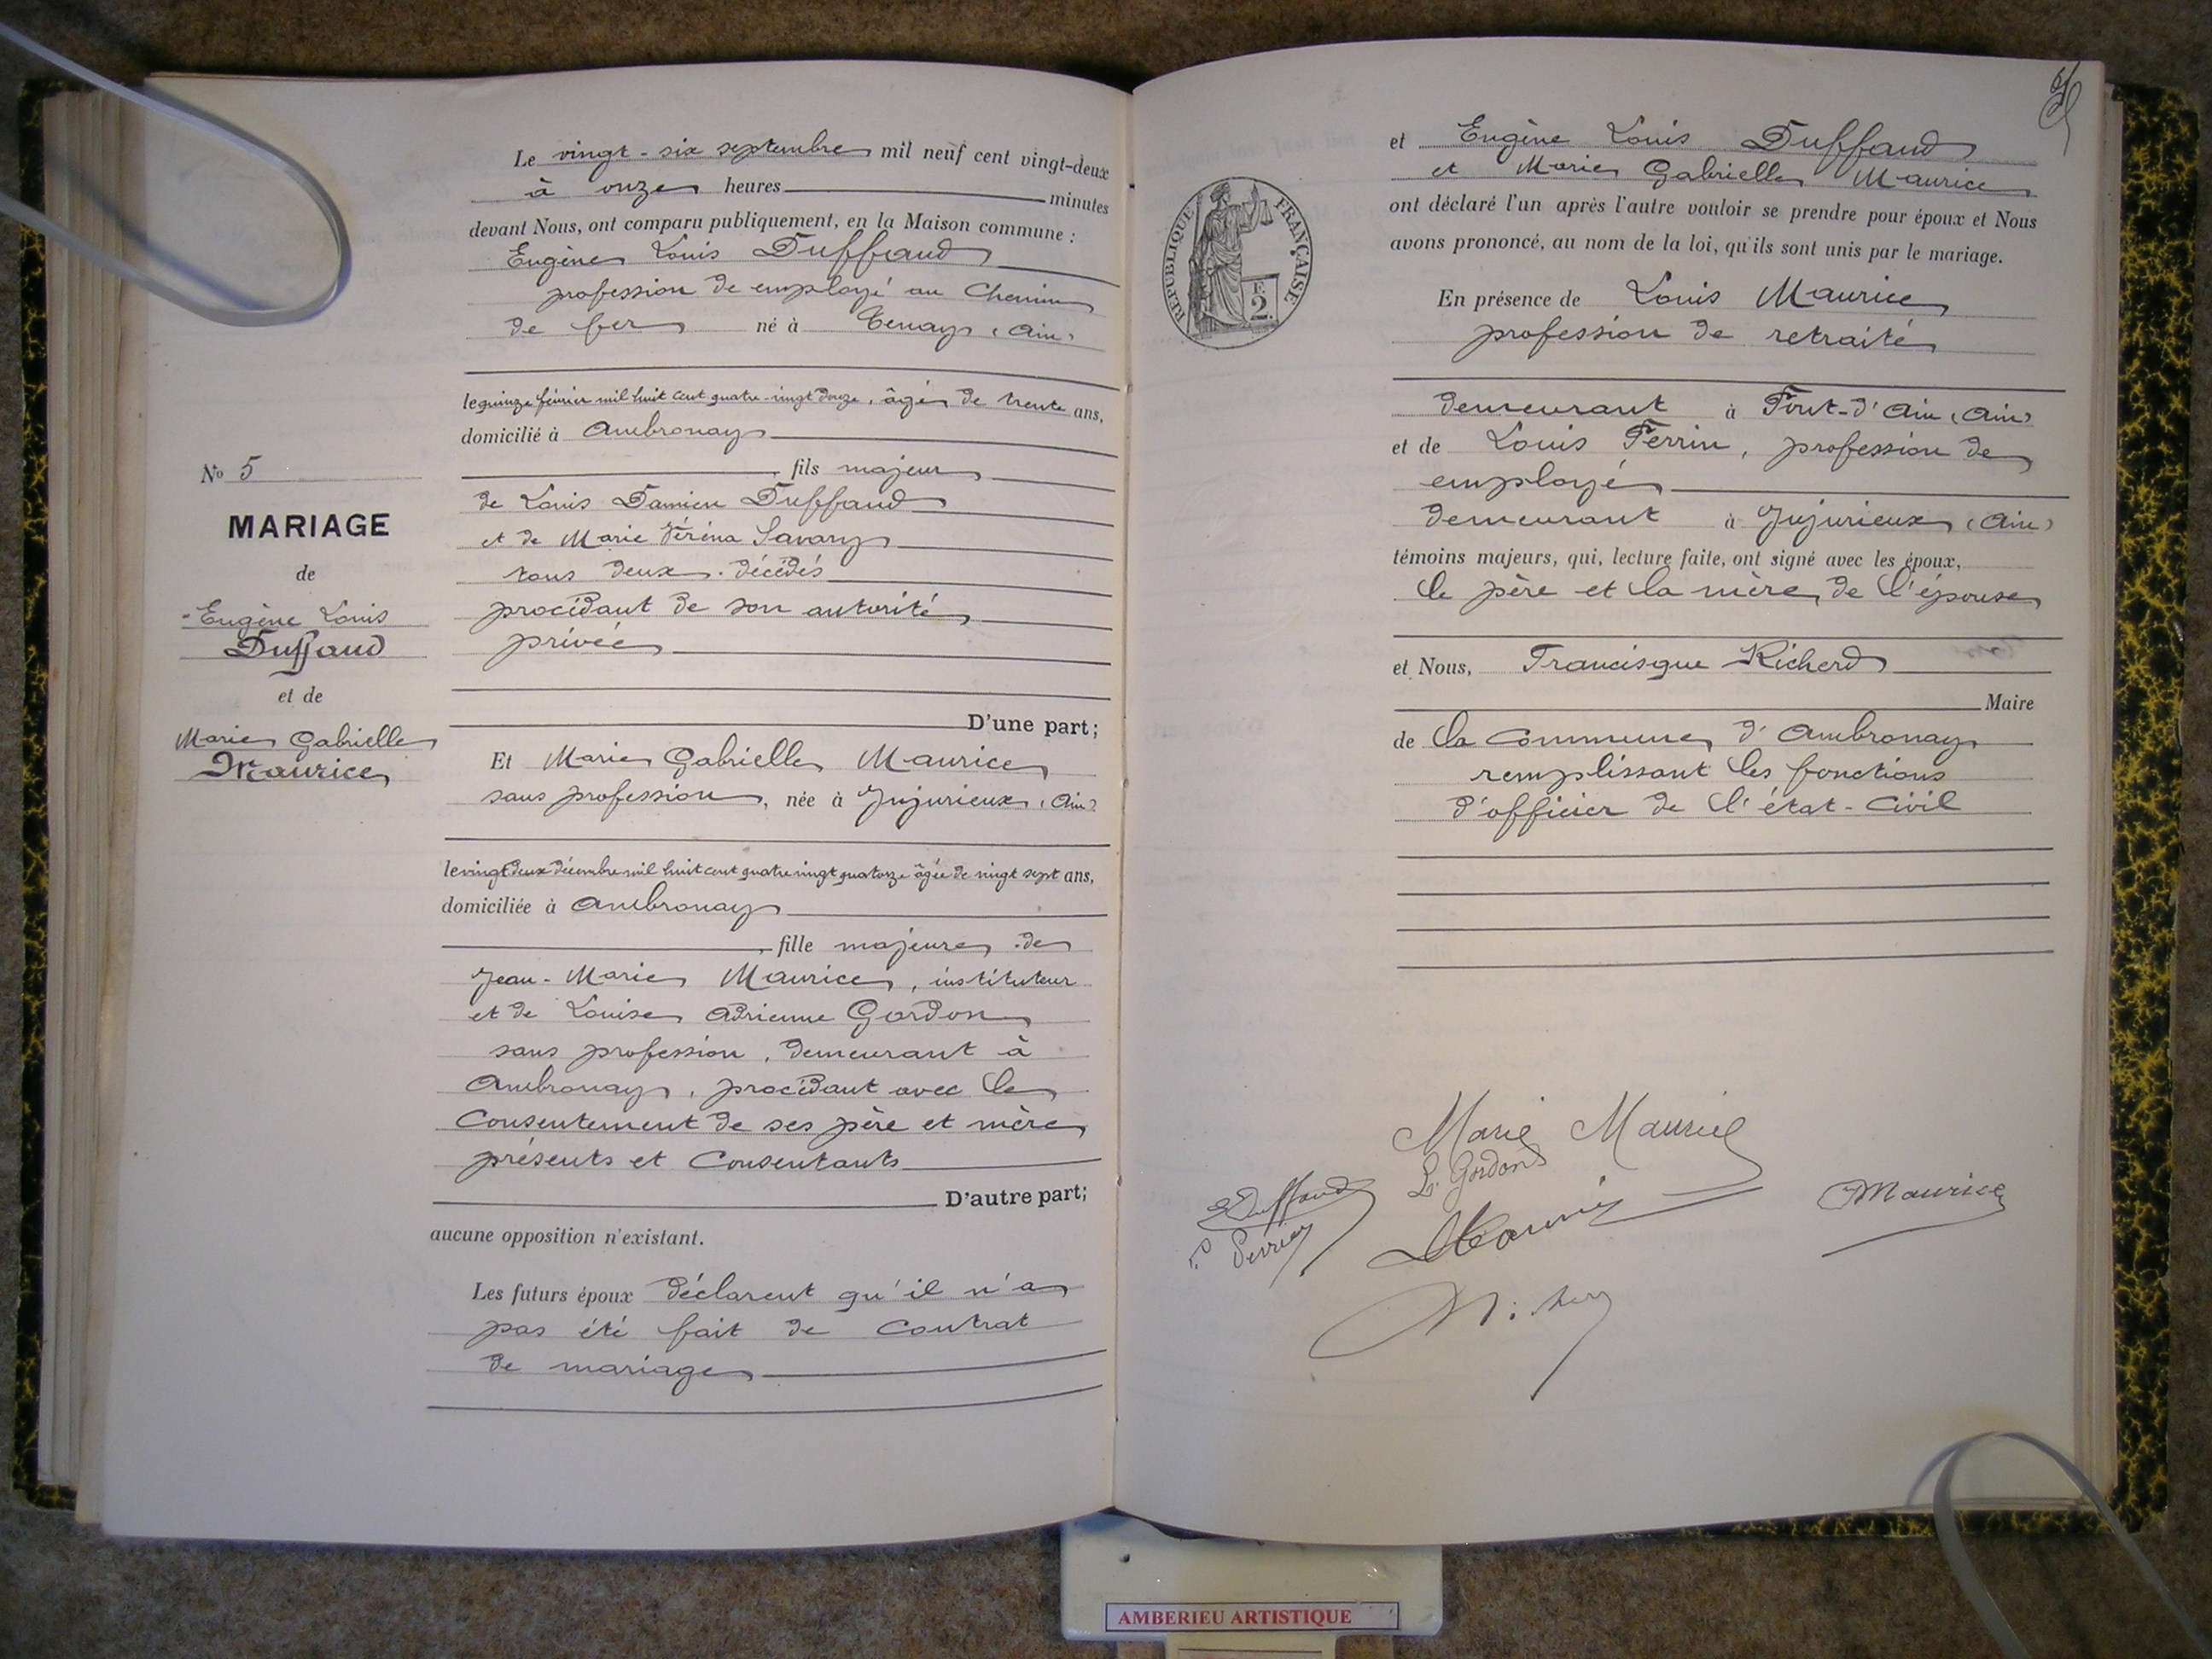 Le vingt-six septembre mil neuf cent vingt-deux
à onze heures minutes
devant Nous, ont comparu publiquement, en la Maison commune :
Eugène Louis Duffaud
profession de employé au Chemin
de fer né à Tenay (Ain)
le quinze février mil huit cent quatre-vingt douze, âgé de trente ans,
domicilié à Ambronay
fils majeur
de Louis Damien Duffaud
et de Marie Véréna Savary
tous deux décédés
procédant de son autorité
privée
D'une part;
No 5
MARIAGE
de
Eugène Louis
Duffaud
et de
Marie Gabrielle
Maurice
Et Marie Gabrielle Maurice
sans profession, née à Jujurieux (Ain)
le vingt deux décembre mil huit cent quatre vingt quatorze âgée de vingt sept ans,
domiciliée à Ambronay
fille majeure de
Jean-Marie Maurice, instituteur
et de Louise Adrienne Gordon
sans profession, demeurant à
Ambronay, procédant avec le
Consentement de ses père et mère
présents et Consentants
D'autre part;
aucune opposition n'existant.
Les futurs époux déclarent qu'il n'a
pas été fait de Contrat
de mariage
et Eugène Louis Duffaud
et Marie Gabrielle Maurice
ont déclaré l'un après l'autre vouloir se prendre pour époux et Nous
avons prononcé, au nom de la loi, qu'ils sont unis par le mariage.
RÉPUBLIQUE FRANÇAISE
F.
2.
En présence de Louis Maurice
profession de retraité
demeurant à Pont-d'Ain (Ain)
et de Louis Perrin, profession de
employé
demeurant à Jujurieux (Ain)
témoins majeurs, qui, lecture faite, ont signé avec les époux,
le père et la mère de l'épouse
et Nous, Francisque Richerd
Maire
de la Commune d'Ambronay
remplissant les fonctions
d'officier de l'état-Civil
Marie Maurice
L. Gordon
E Duffaud
Maurice
Perrin
Maurice
Richerd
AMBERIEU ARTISTIQUE